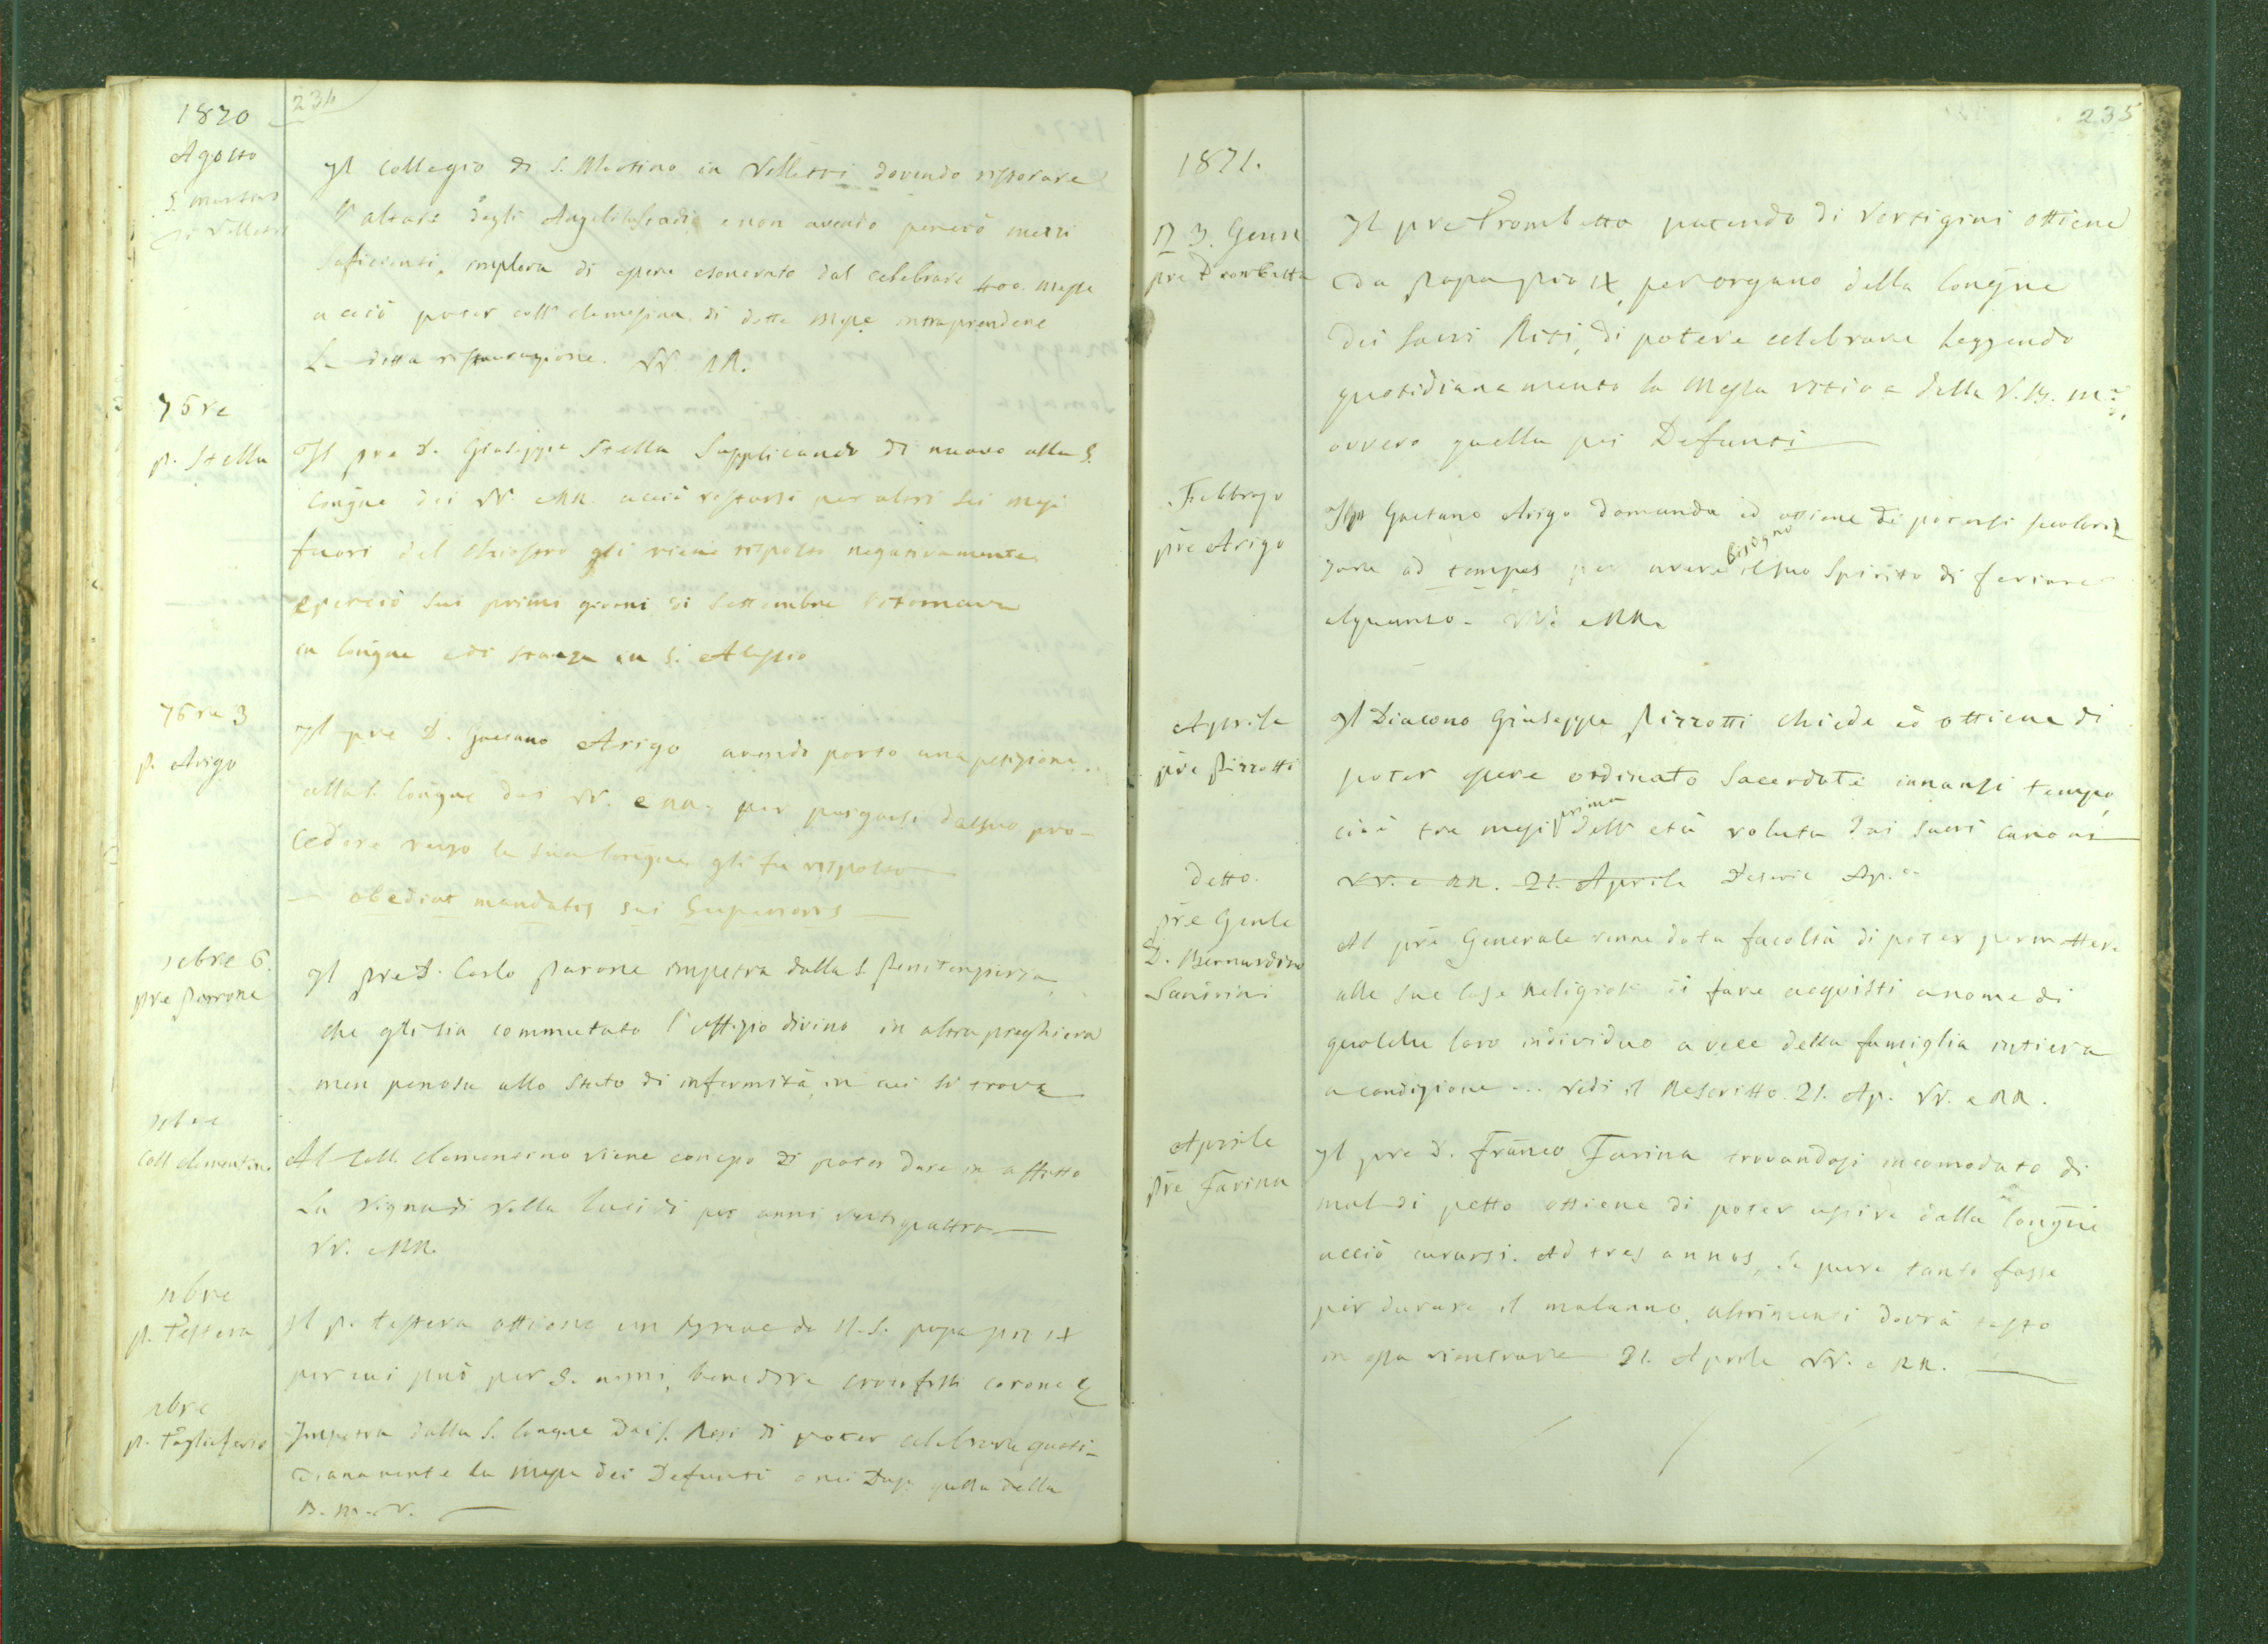 1870
234
Agosto
S. Martino
di Velletri
Il Collegio di S. Martino in Velletri dovendo ristorare
l'altare degli Angeli Custodi, e non avendo perciò mezzi
suficienti, implora di essere esonerato dal celebrare 400. messe
acciò poter coll'elemosina di dette messe intraprendere
La detta ristaurazione. VV. RR.
7bre
p. Stella
Il pre D. Giuseppe Stella Supplicando di nuovo alla S.
Congne dei VV. e RR. acciò restarsi per altri sei mesi
fuori del Chiostro gli viene risposto negativamente
e perciò sui primi giorni di Settembre ritornava
in Congne e di stanza in S. Alessio
7bre 3
p. Arigo
Il pre D. Gaetano Arigo avendo porto una petizione
alla S. Congne dei VV. e RR. per purgarsi dal suo pro-
cedere verso la sua Congne gli fu risposto
— obediat mandatis sui Superioris —
bre 6.
pre Parone
Il pre D. Carlo Parone impetra dalla S. Penitenzieria
che gli sia commutato l'uffizio divino in altra preghiera
men penosa allo stato di infermità, in cui si trova
Coll Clementino
Al Coll. Clementino viene concesso di poter dare in affitto
La Vigna di Villa Lucidi per anni ventiquattro —
VV. e RR.
nbre
p. Testera
Il p. Testera ottiene un Breve da N. S. papa pio IX
per cui può per 5. anni, benedire crocifissi corone &
nbre
p. Tagliaferro
Impetra dalla S. Congne dei S. Riti di poter celebrare quoti-
dianamente la messa dei Defunti o nei quella della
B. M. V. —
235
1871.
3. Genn
pre Trombetta
Il pre Trombetta patendo di vertigini ottiene
da Papa Pio IX, per organo della Congne
dei Sacri Riti, di potere celebrare Leggendo
quotidianamente la Messa votiva della V. B. M.
ovvero quella pei Defunti —
Febbrajo
pre Arigo
Il p Gaetano Arigo domanda ed ottiene di potersi secolariz
zare ad tempus per avere bisogno il suo Spirito di feriare
alquanto. VV. e RR.
Aprile
pre Pizzotti
Il Diacono Giuseppe Pizzotti chiede ed ottiene di
poter essere ordinato Sacerdote innanzi tempo,
cioè tre mesi prima dell'età voluta dai sacri canoni
VV. e RR. 21. Aprile Ap.
detto.
pre Genle
D. Bernardino
Sandrini
Al pre Generale venne data facoltà di poter permettere
alle sue Case Religiose di fare acquisti a nome di
qualche loro individuo a vece della famiglia intiera
a condizione ... Vedi il Rescritto. 21. Ap. VV. e RR.
Aprile
Pre Farina
Il pre D. Franco Farina trovandosi incomodato di
mal di petto ottiene di poter uscire dalla Congne
acciò curarsi. Ad tres annos, se pure tanto fosse
per durare il malanno, altrimenti dovrà tosto
in essa rientrare 21. Aprile VV. e RR. —